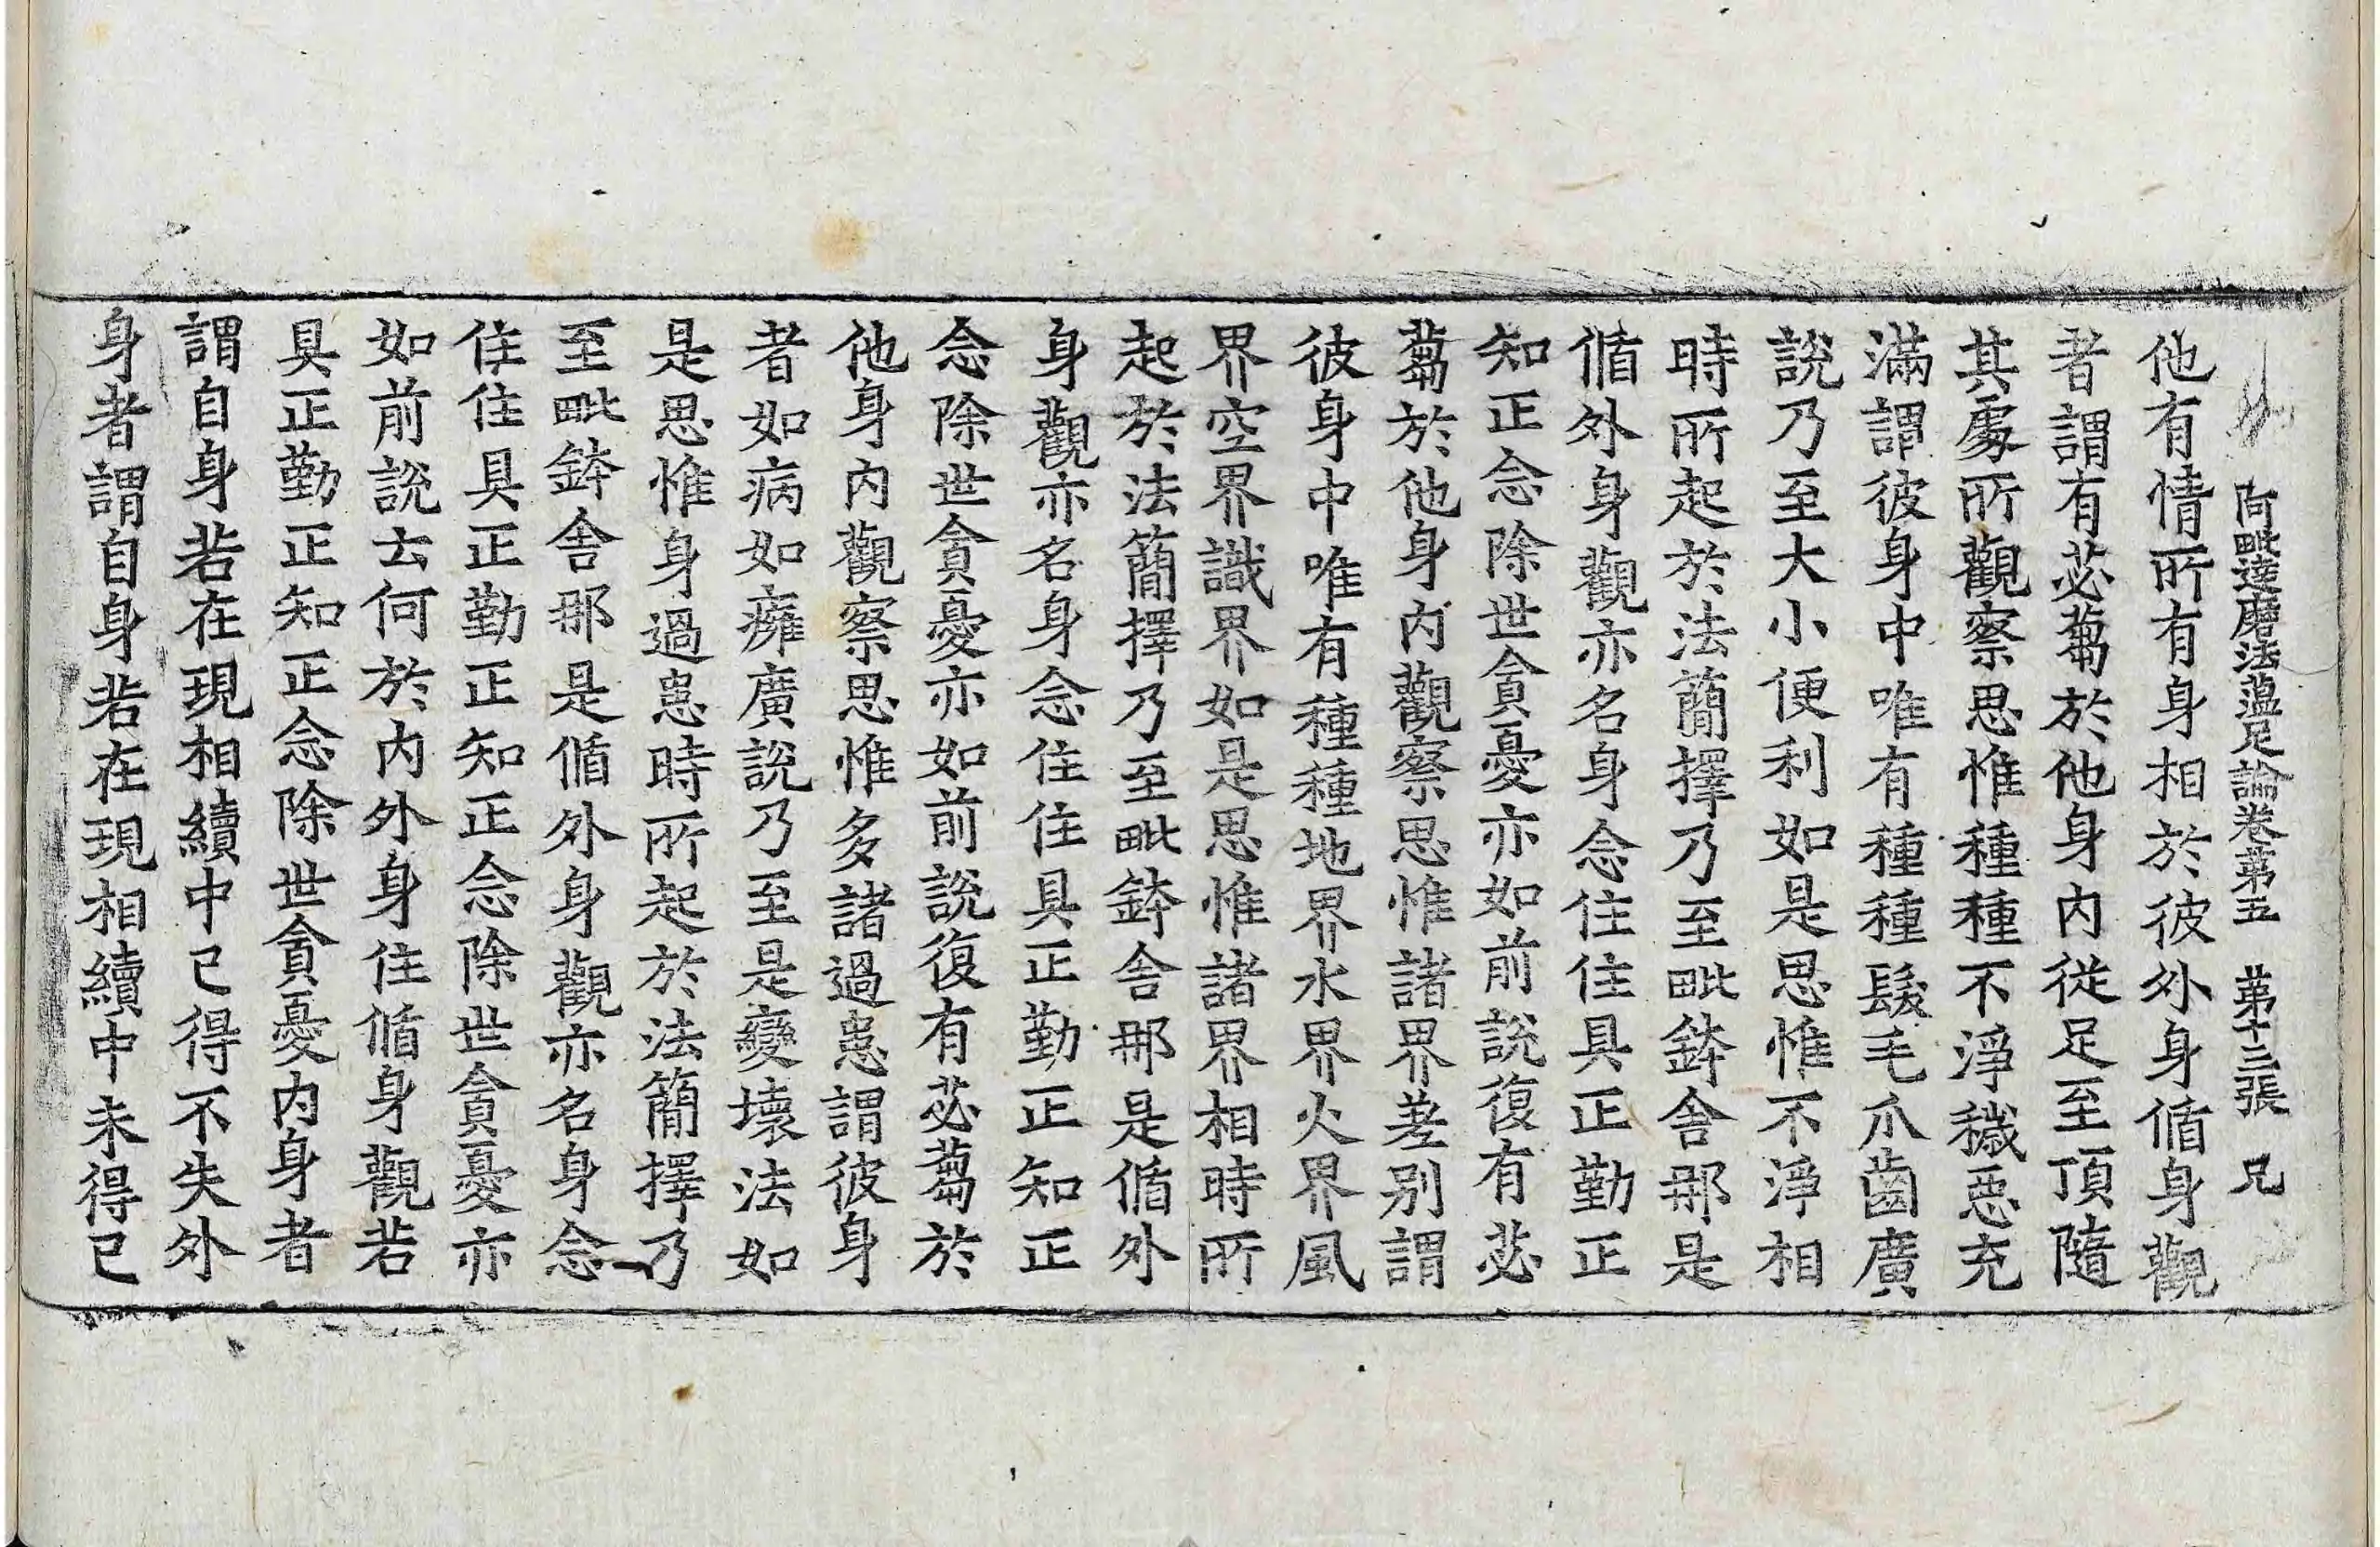 阿毗達磨法蘊足論卷第五 第十三張 兄
他有情所有身相於彼外身循身觀
者謂有苾蒭於他身內從足至頂隨
其處所觀察思惟種種不淨穢惡充
滿謂彼身中唯有種種髮毛爪齒廣
說乃至大小便利如是思惟不淨相
時所起於法簡擇乃至毗鉢舍那是
循外身觀亦名身念住住具正勤正
知正念除世貪憂亦如前說復有苾
蒭於他身內觀察思惟諸界差別謂
彼身中唯有種種地界水界火界風
界空界識界如是思惟諸界相時所
起於法簡擇乃至毗鉢舍那是循外
身觀亦名身念住住具正勤正知正
念除世貪憂亦如前說復有苾蒭於
他身內觀察思惟多諸過患謂彼身
者如病如癰廣說乃至是變壞法如
是思惟身過患時所起於法簡擇乃
至毗鉢舍那是循外身觀亦名身念
住住具正勤正知正念除世貪憂亦
如前說云何於內外身住循身觀若
具正勤正知正念除世貪憂內身者
謂自身若在現相續中已得不失外
身者謂自身若在現相續中未得已